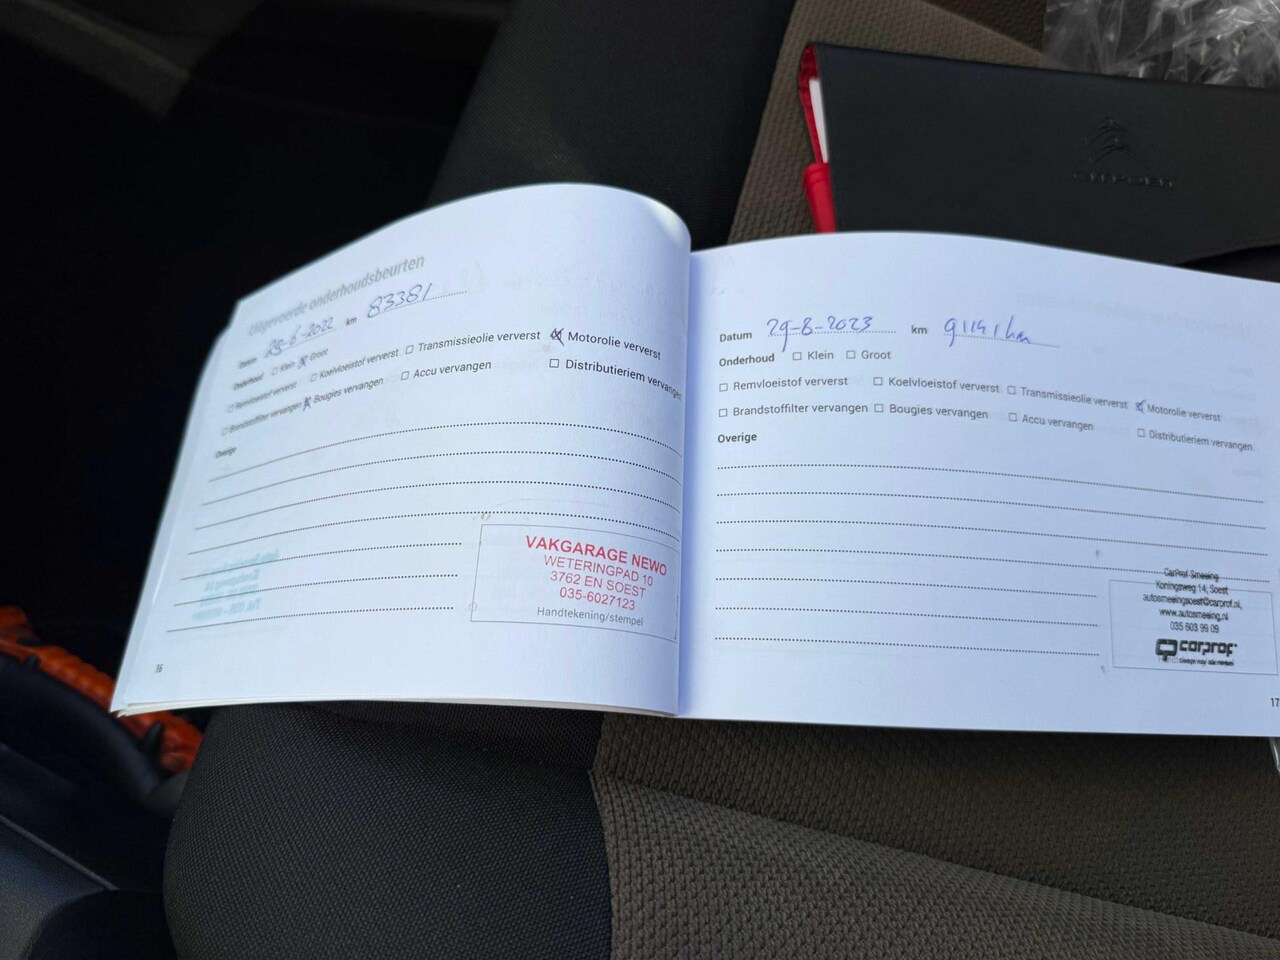 Uitgevoerde onderhoudsbeurten
Datum 29-6-2022 km 83381
Onderhoud ☐ Klein ☒ Groot
☐ Remvloeistof ververst ☐ Koelvloeistof ververst ☐ Transmissieolie ververst ☒ Motorolie ververst
☐ Brandstoffilter vervangen ☒ Bougies vervangen ☐ Accu vervangen ☐ Distributieriem vervangen
Overige
VAKGARAGE NEWO
WETERINGPAD 10
3762 EN SOEST
035-6027123
Handtekening/stempel
16
Datum 29-8-2023 km 91141 km
Onderhoud ☐ Klein ☐ Groot
☐ Remvloeistof ververst ☐ Koelvloeistof ververst ☐ Transmissieolie ververst ☒ Motorolie ververst
☐ Brandstoffilter vervangen ☐ Bougies vervangen ☐ Accu vervangen ☐ Distributieriem vervangen
Overige
CarProf Smeeing
Koningsweg 14, Soest
autosmeeingsoest@carprof.nl,
www.autosmeeing.nl
035 603 99 09
carprof
17
CITROËN